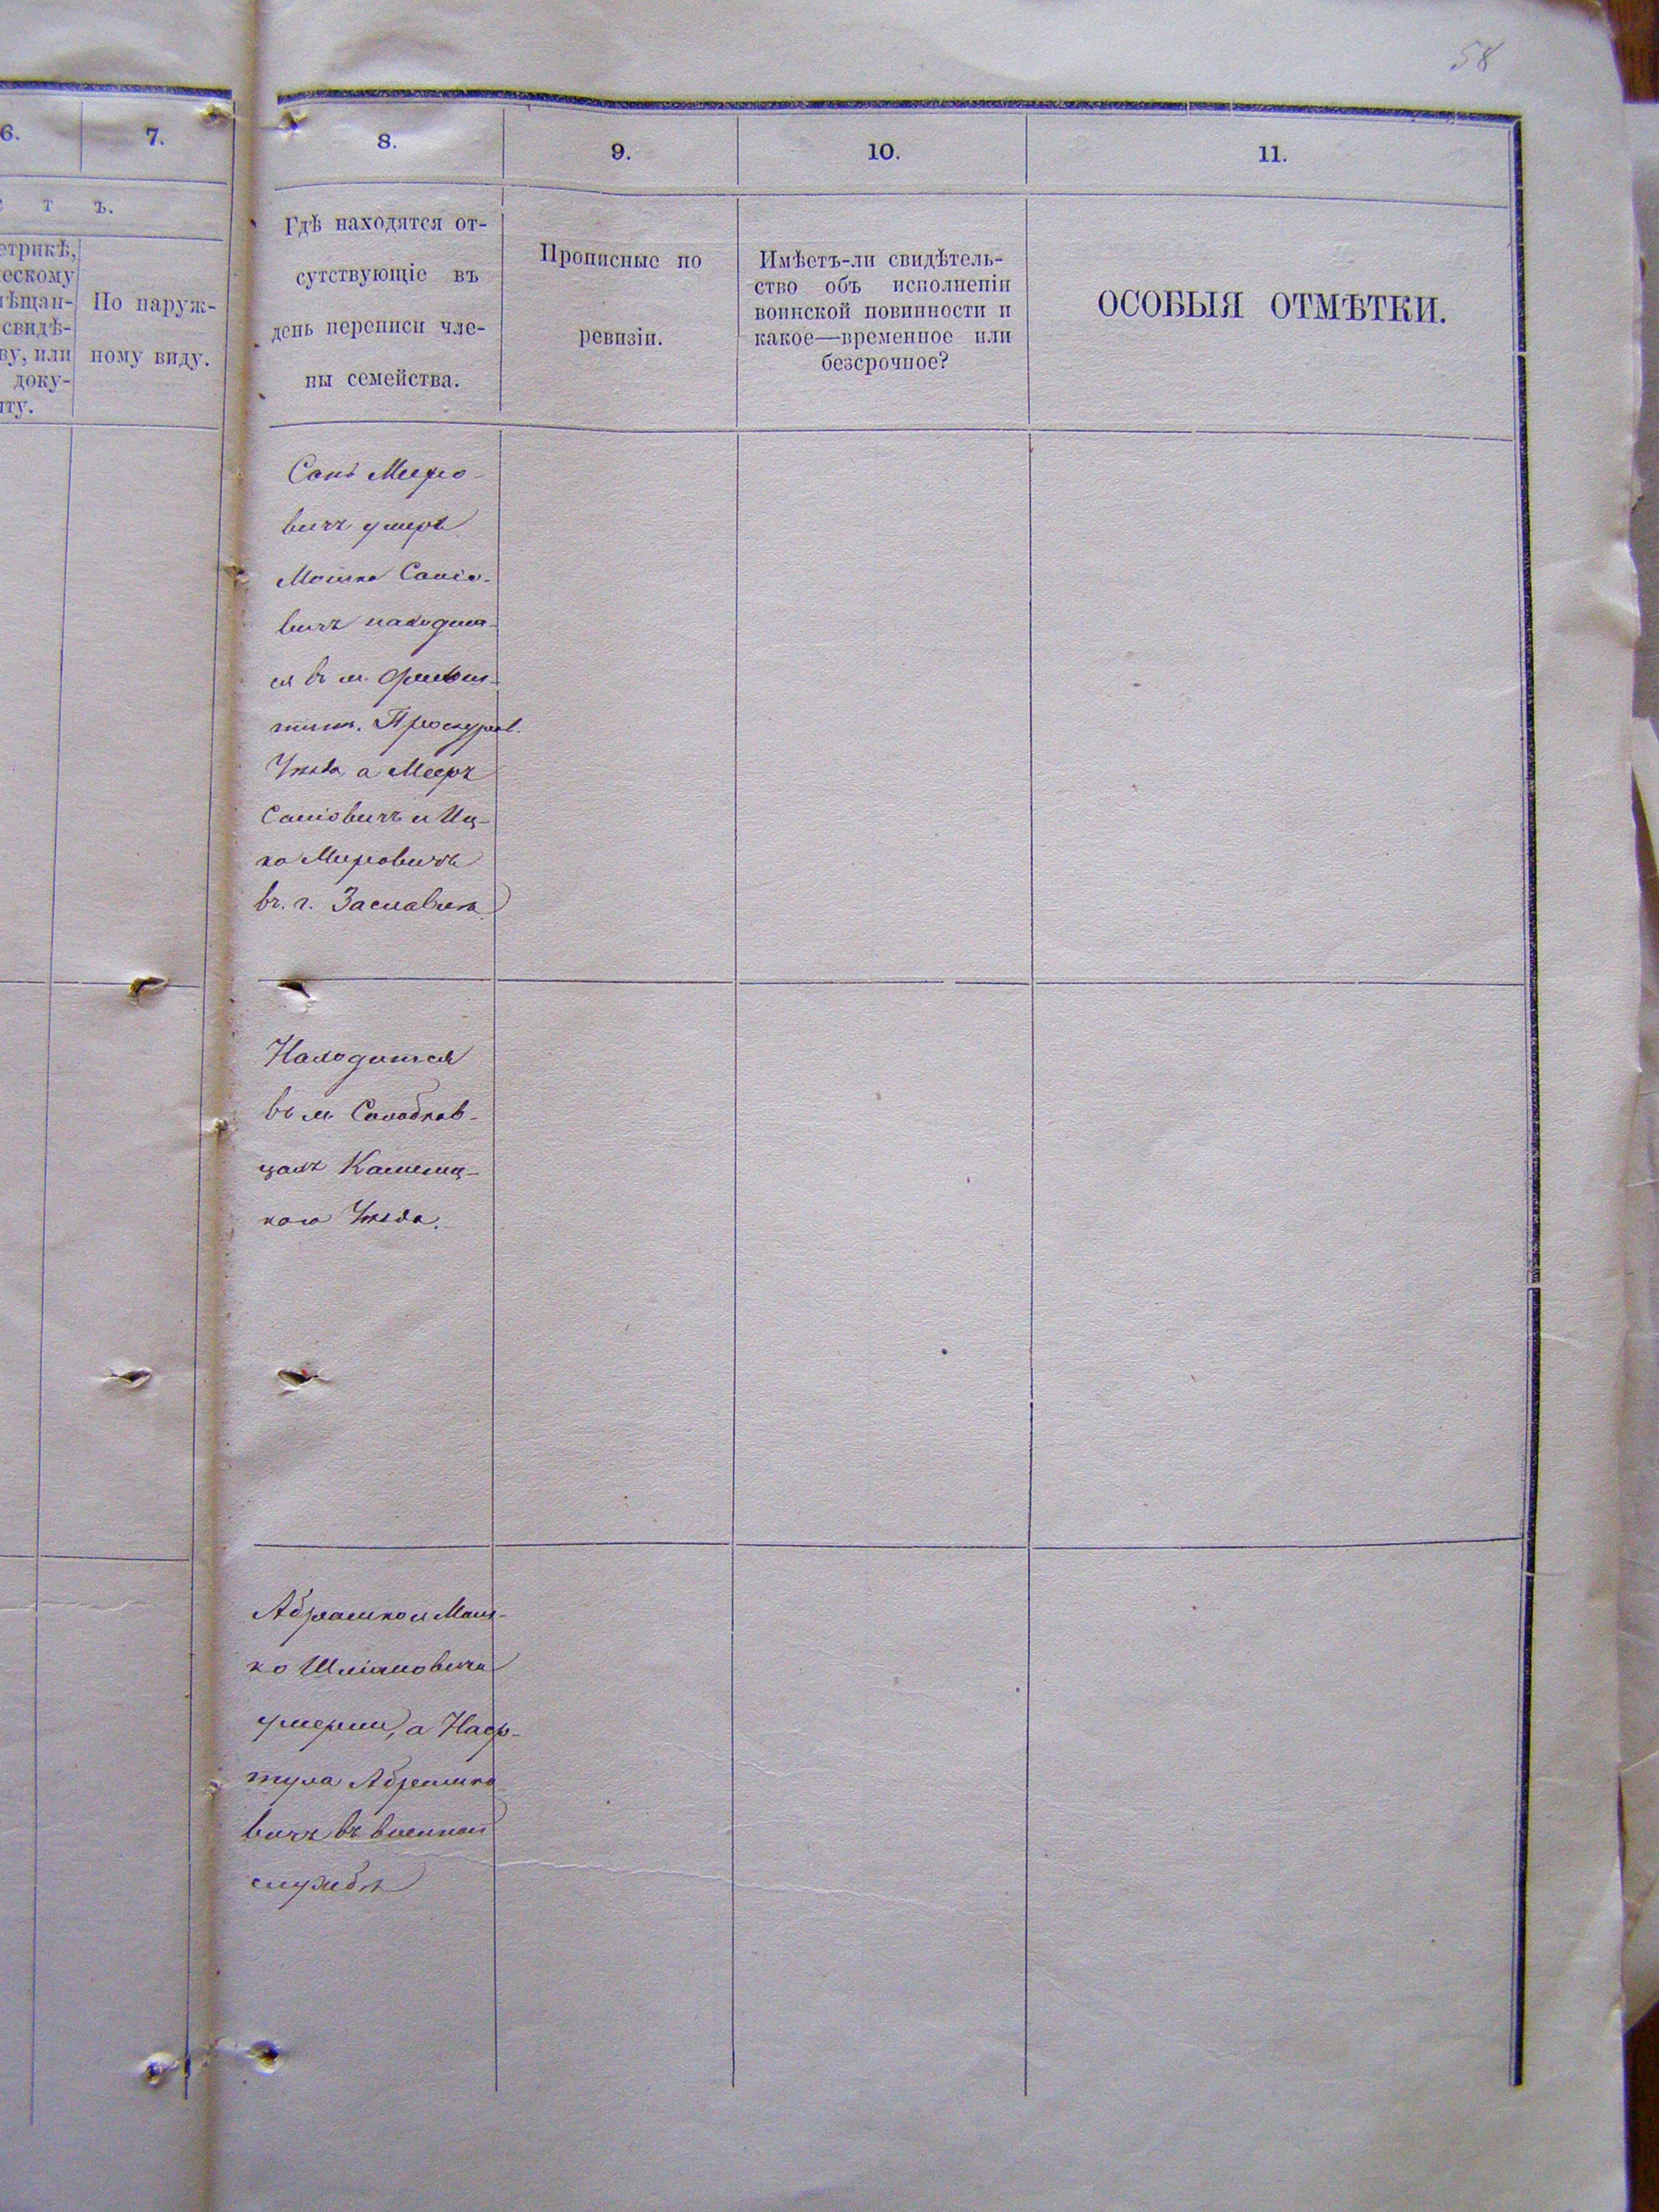 58
6.
7.
8.
9.
10.
11.
с т ъ.
етрикѣ,
ческому
мѣщан-
свидѣ-
ву, или
доку-
нту.
По наруж-
ному виду.
Гдѣ находятся от-
сутствующіе въ
день переписи чле-
ны семейства.
Прописные по
ревизіи.
Имѣетъ-ли свидѣтель-
ство объ исполненіи
воинской повинности и
какое—временное или
безсрочное?
ОСОБЫЯ ОТМѢТКИ.
Меиро-
вичъ умеръ
Мошко Саніо-
вичъ находит-
ся въ м.
Проскуров.
Уѣзда а Мееръ
Саніовичъ и Иц-
ко Мировичъ
въ. г. Заславлѣ
Находится
въ м. Солобков-
цахъ Камениц-
кого Уѣзда.
Абрамко и Мош-
ко Шліомовичи
умерли, а Наф-
тула Абрамко
вичъ въ военной
службѣ